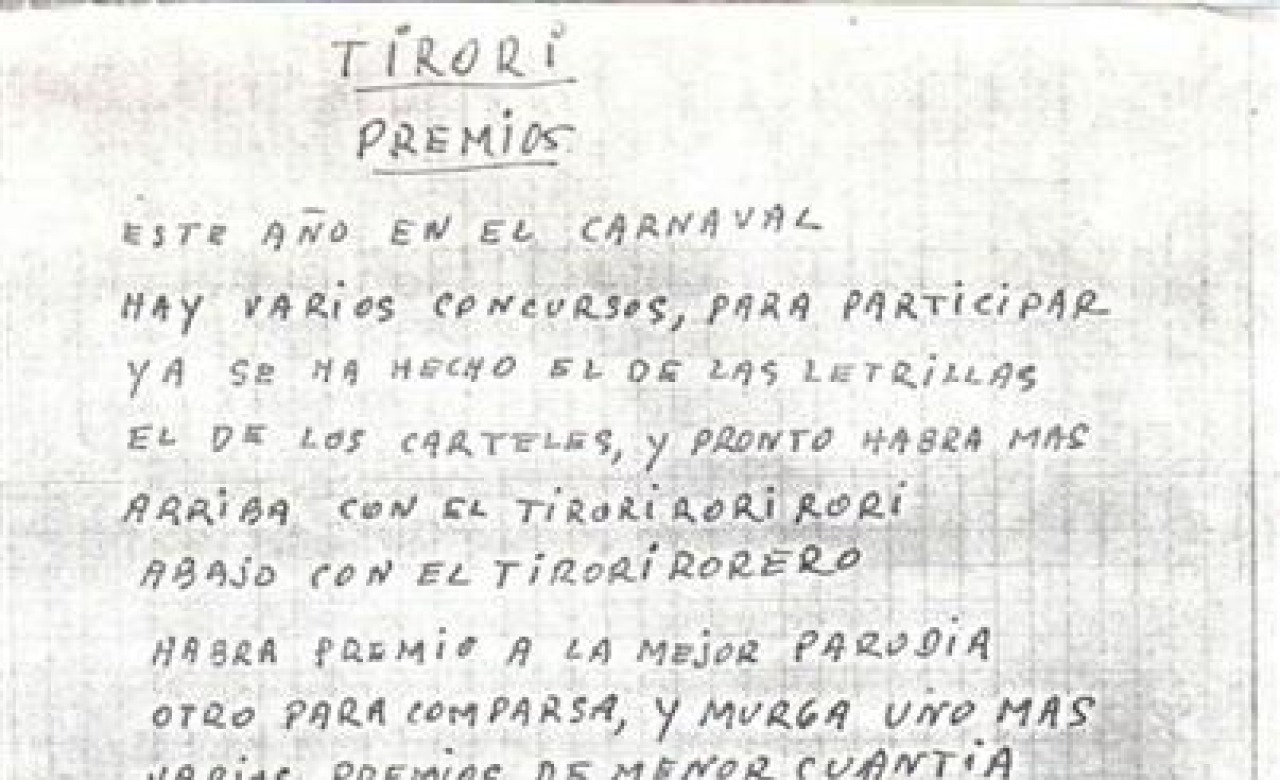 TIRORI
PREMIOS
ESTE AÑO EN EL CARNAVAL
HAY VARIOS CONCURSOS, PARA PARTICIPAR
YA SE HA HECHO EL DE LAS LETRILLAS
EL DE LOS CARTELES, Y PRONTO HABRA MAS
ARRIBA CON EL TIRORIRORIRORI
ABAJO CON EL TIRORIRORERO
HABRA PREMIO A LA MEJOR PARODIA
OTRO PARA COMPARSA, Y MURGA UNO MAS
VARIOS PREMIOS DE MENOR CUANTIA